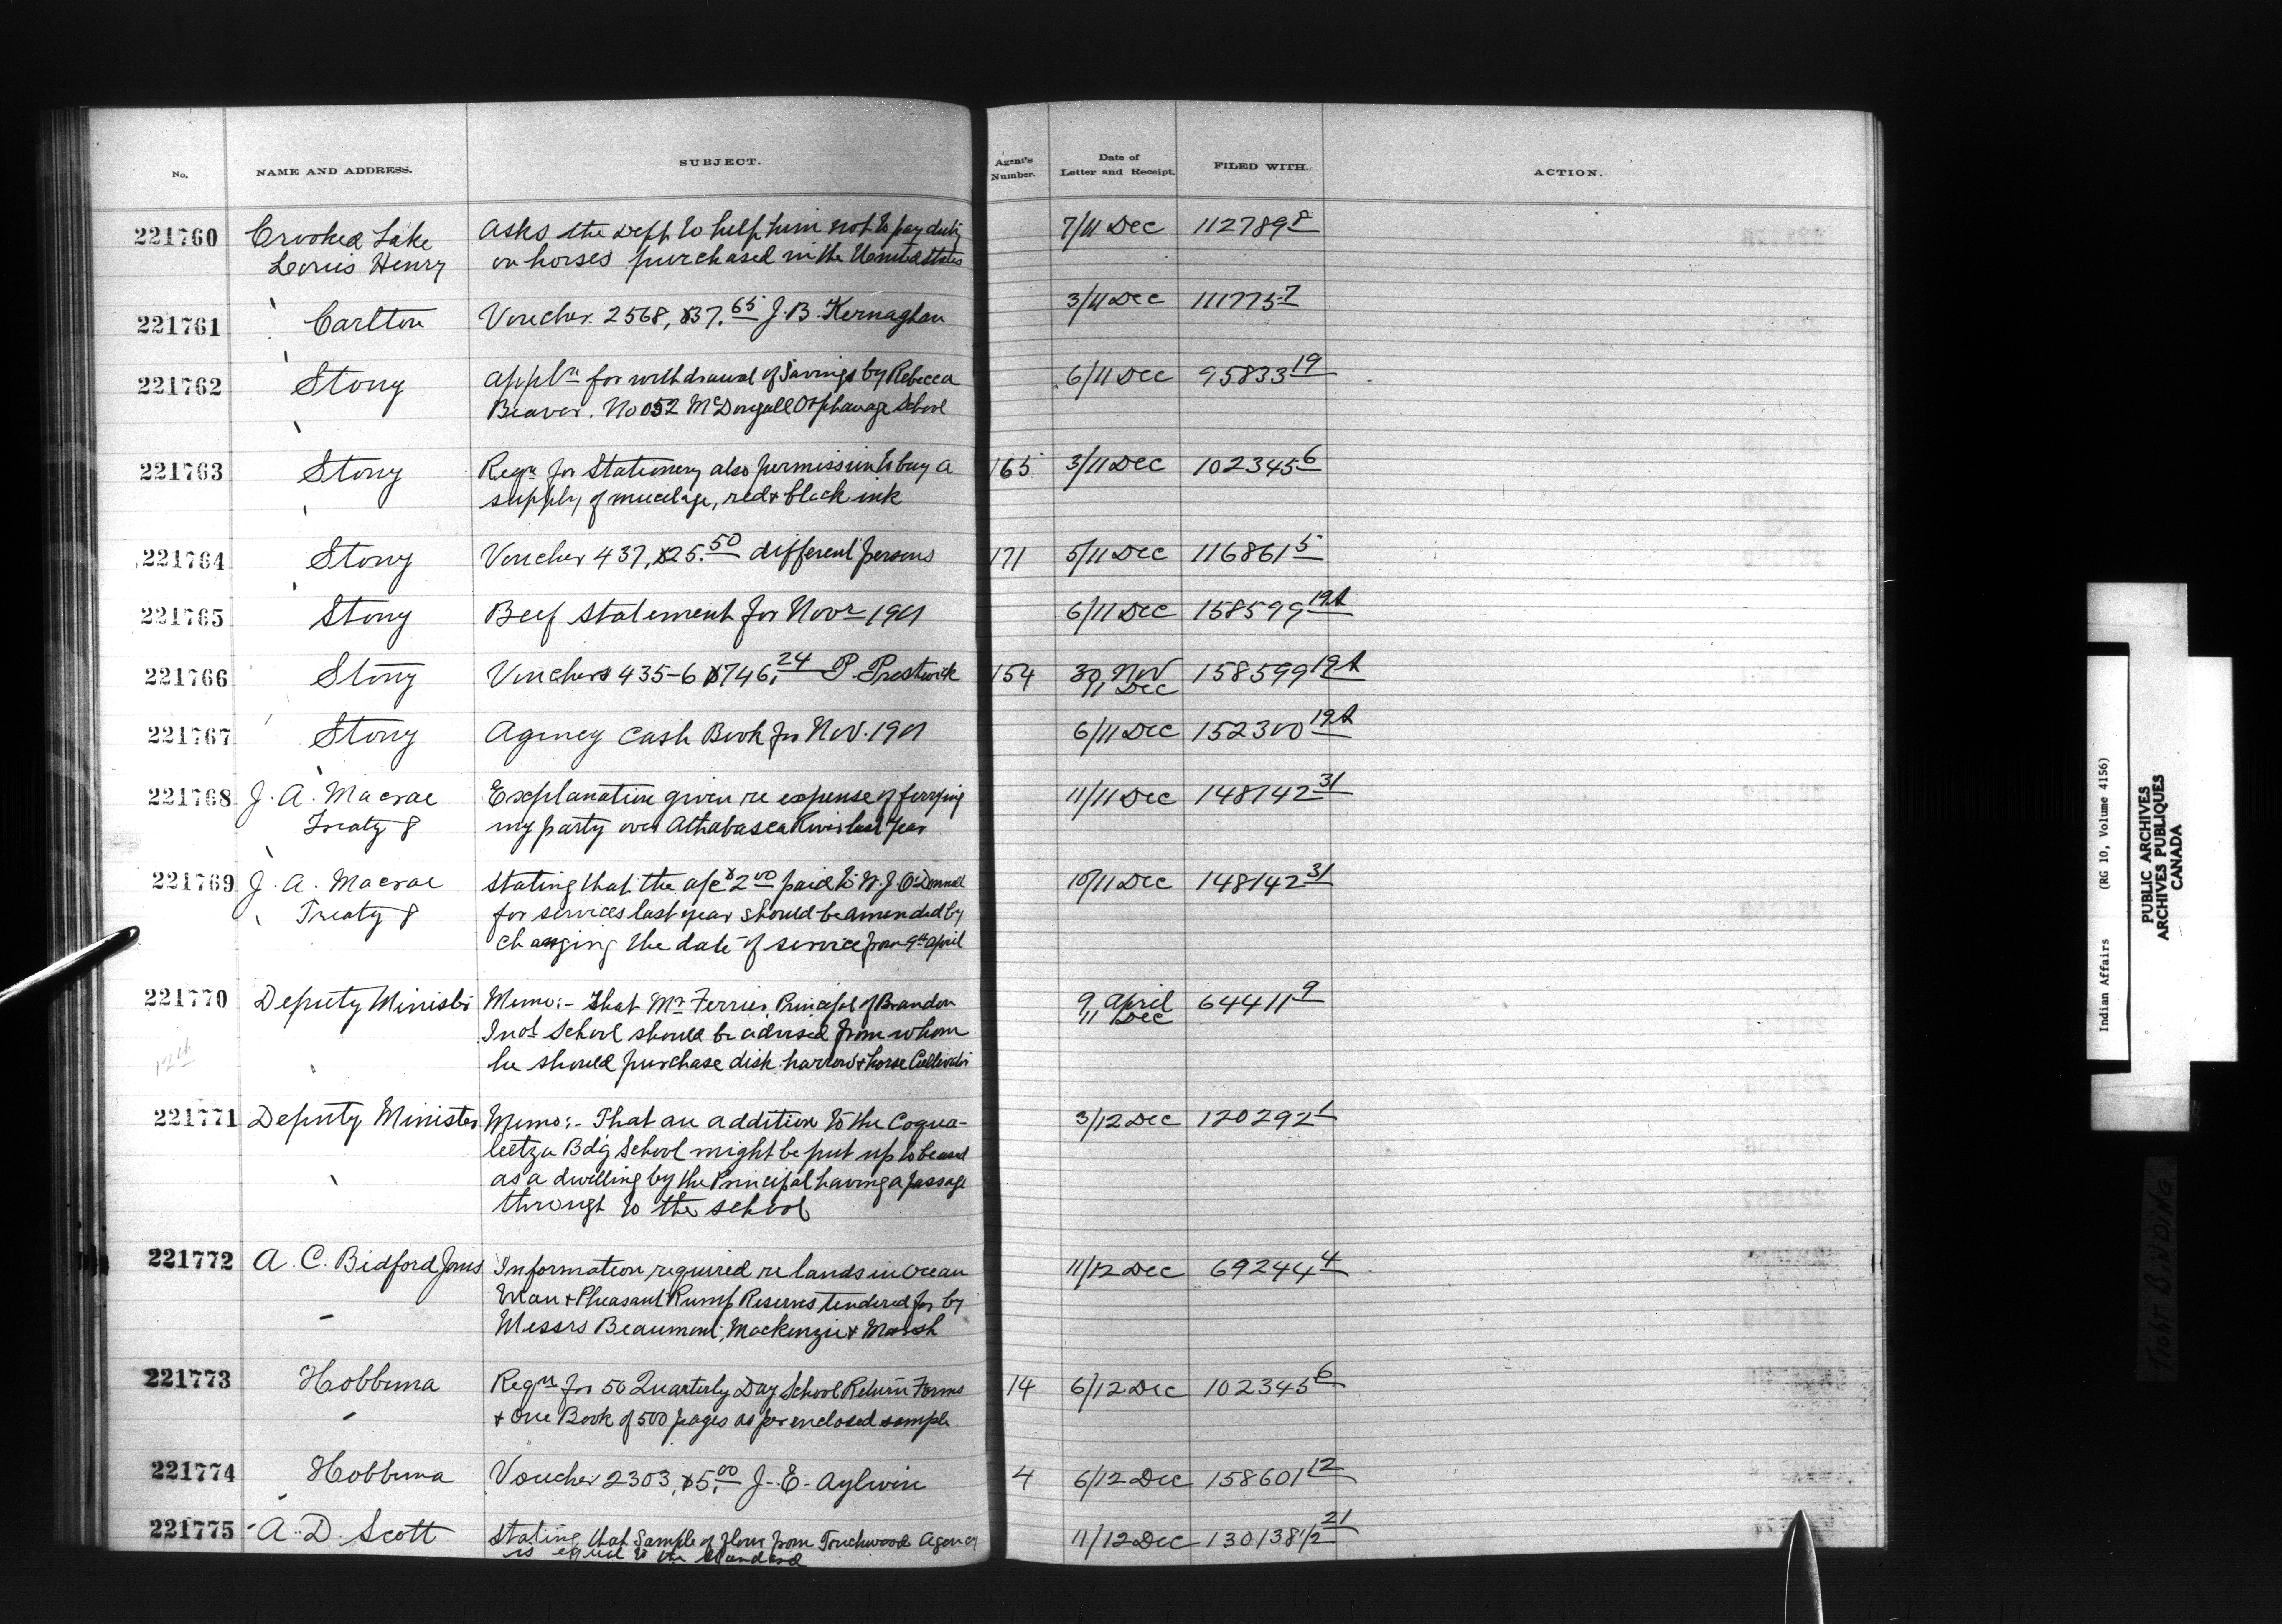 No. NAME AND ADDRESS. SUBJECT. Agent's Number. Date of Letter and Receipt. FILED WITH. ACTION.
221760 Crooked Lake Asks the Dept to help him not to pay duty 7/11 Dec 112789 8
Louis Henry on horses purchased in the United States
221761 Carlton Voucher 2568, $37.65 J. B. Kernaghan 3/11 Dec 111775 7
221762 Stony Appln for withdrawal of Savings by Rebecca 6/11 Dec 95833 19
Beaver. No 052 McDougall Orphanage School
221763 Stony Reqn for Stationery also permission to buy a 165 3/11 Dec 102345 6
supply of mucelage, red & black ink
221764 Stony Voucher 437, $25.50 different persons 171 5/11 Dec 116861 5
221765 Stony Beef Statement for Novr 1901 6/11 Dec 158599 19A
221766 Stony Vouchers 435-6 $746.24 P. Prestwick 154 30 Nov 158599 19A
11 Dec
221767 Stony Agency Cash Book for Nov. 1901 6/11 Dec 152300 19A
221768 J. A. Macrae Explanation given re expense of ferrying 11/11 Dec 148142 31
Treaty 8 my party over Athabasca River last year
221769 J. A. Macrae Stating that the a/c $2.00 paid to W. J. O'Donnell 10/11 Dec 148142 31
Treaty 8 for services last year should be amended by
changing the date of service from 9th April
221770 Deputy Minister Memo:- That Mr Ferrier, Principal of Brandon 9 April 64411 9
Indl School should be advised from whom 11 Dec
12th he should purchase disk harrow & horse Cultivator
221771 Deputy Minister Memo:- That an addition to the Coqua- 3/12 Dec 120292 1
leetza Bdg School might be put up to be used
as a dwelling by the Principal having a passage
through to the school
221772 A. C. Bidford Jones Information required re lands in Ocean 11/12 Dec 69244 4
Man & Pheasant Rump Reserves tendered for by
Messrs Beaumont, Mackenzie & Marsh
221773 Hobbema Reqn for 50 Quarterly Day School Return Forms 14 6/12 Dec 102345 6
& One Book of 500 pages as per enclosed sample
221774 Hobbema Voucher 2303, $5.00 J. E. Aylwin 4 6/12 Dec 158601 12
221775 A. D. Scott Stating that Sample of flour from Touchwood Agency 11/12 Dec 130138 1/2 21
is equal to the Standard
Indian Affairs (RG 10, Volume 4156)
PUBLIC ARCHIVES
ARCHIVES PUBLIQUES
CANADA
TIGHT BINDING